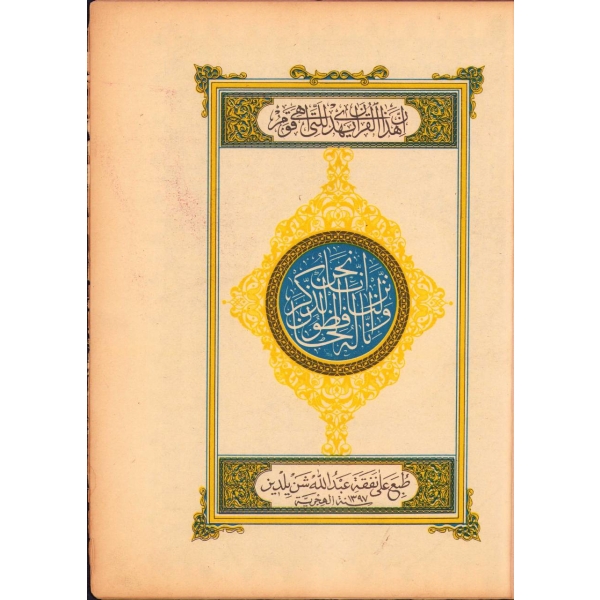 ان هذا القرآن يهدي للتي هي اقوم
انا نحن نزلنا الذكر وانا له لحافظون
طبع على نفقة عبد الله شن يلديز
سنة ١٣٩٧ الهجرية